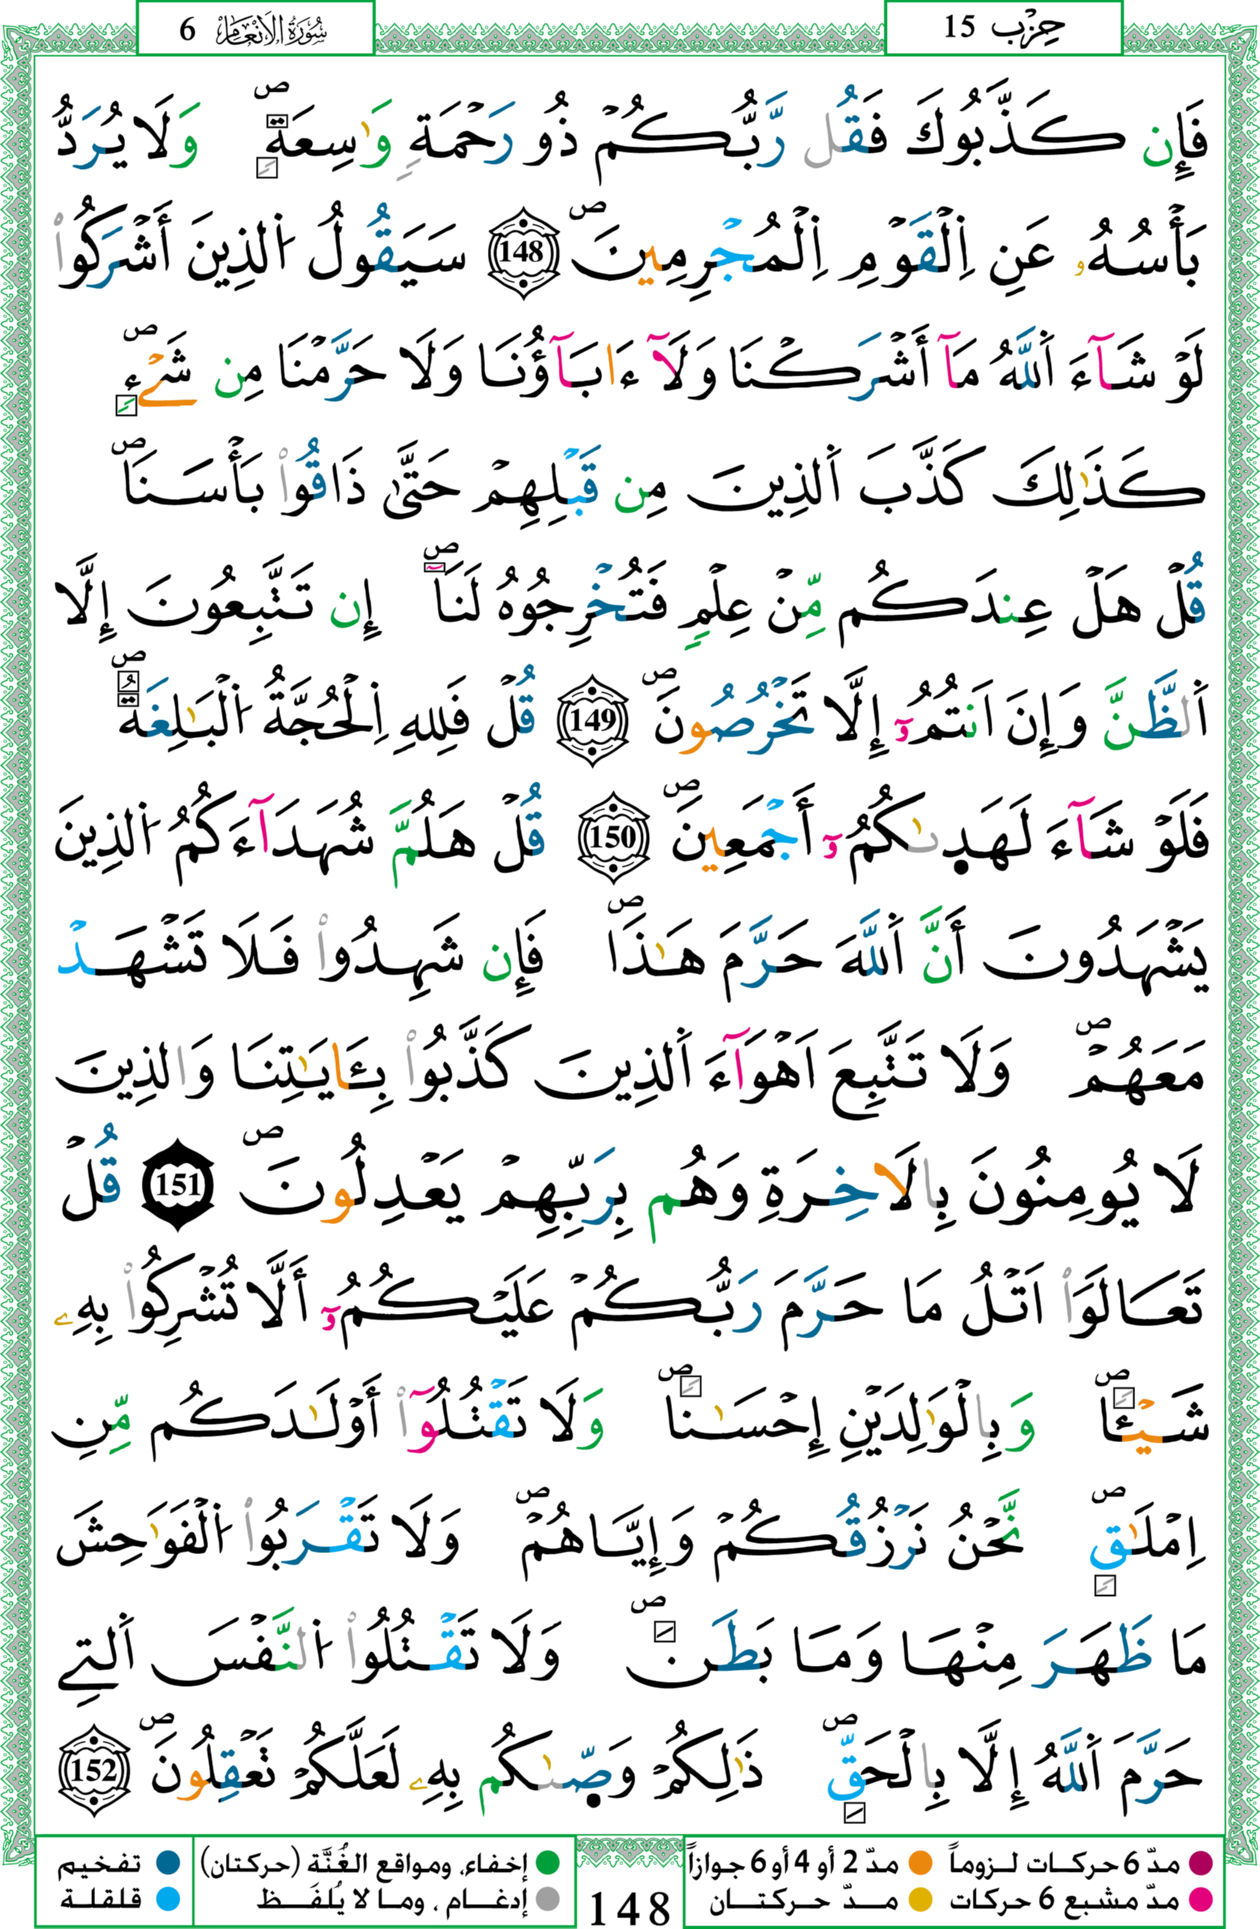 حِزْب 15
سُورَةُ الْأَنْعَامِ 6
فَإِن كَذَّبُوكَ فَقُل رَّبُّكُمْ ذُو رَحْمَةٖ وَٰسِعَةٖ وَلَا يُرَدُّ
بَأْسُهُۥ عَنِ اِ۬لْقَوْمِ اِ۬لْمُجْرِمِينَ 148 سَيَقُولُ اُ۬لذِينَ أَشْرَكُواْ
لَوْ شَآءَ اَ۬للَّهُ مَآ أَشْرَكْنَا وَلَآ ءَابَآؤُنَا وَلَا حَرَّمْنَا مِن شَےْءٖ
كَذَٰلِكَ كَذَّبَ اَ۬لذِينَ مِن قَبْلِهِمْ حَتَّىٰ ذَاقُواْ بَأْسَنَا
قُلْ هَلْ عِندَكُم مِّنْ عِلْمٖ فَتُخْرِجُوهُ لَنَا إِن تَتَّبِعُونَ إِلَّا
اَ۬لظَّنَّ وَإِنَ اَنتُمُۥٓ إِلَّا تَخْرُصُونَ 149 قُلْ فَلِلهِ اِ۬لْحُجَّةُ اُ۬لْبَٰلِغَةُ
فَلَوْ شَآءَ لَهَد۪ىٰكُمُۥٓ أَجْمَعِينَ 150 قُلْ هَلُمَّ شُهَدَآءَكُمُ اُ۬لذِينَ
يَشْهَدُونَ أَنَّ اَ۬للَّهَ حَرَّمَ هَٰذَا فَإِن شَهِدُواْ فَلَا تَشْهَدْ
مَعَهُمْ وَلَا تَتَّبِعَ اَهْوَآءَ اَ۬لذِينَ كَذَّبُواْ بِـَٔايَٰتِنَا وَالذِينَ
لَا يُومِنُونَ بِالَاخِرَةِ وَهُم بِرَبِّهِمْ يَعْدِلُونَ 151 قُلْ
تَعَالَوَاْ اَتْلُ مَا حَرَّمَ رَبُّكُمْ عَلَيْكُمُۥٓ أَلَّا تُشْرِكُواْ بِهِۦ
شَيْـٔاٗ وَبِالْوَٰلِدَيْنِ إِحْسَٰناٗ وَلَا تَقْتُلُوٓاْ أَوْلَٰدَكُم مِّنِ
اِمْلَٰقٖ نَّحْنُ نَرْزُقُكُمْ وَإِيَّاهُمْ وَلَا تَقْرَبُواْ اُ۬لْفَوَٰحِشَ
مَا ظَهَرَ مِنْهَا وَمَا بَطَنَ وَلَا تَقْتُلُواْ اُ۬لنَّفْسَ اَ۬لتِے
حَرَّمَ اَ۬للَّهُ إِلَّا بِالْحَقِّ ذَٰلِكُمْ وَصّ۪ىٰكُم بِهِۦ لَعَلَّكُمْ تَعْقِلُونَ 152
مدّ 6 حركات لـزوماً
مدّ 2 أو 4 أو 6 جوازاً
مدّ مشبع 6 حركات
مـدّ حركتـان
148
إخفاء، ومواقع الغُنَّة (حركتان)
إدغـام ، ومـا لا يُلفَـظ
تفخيم
قلقلة